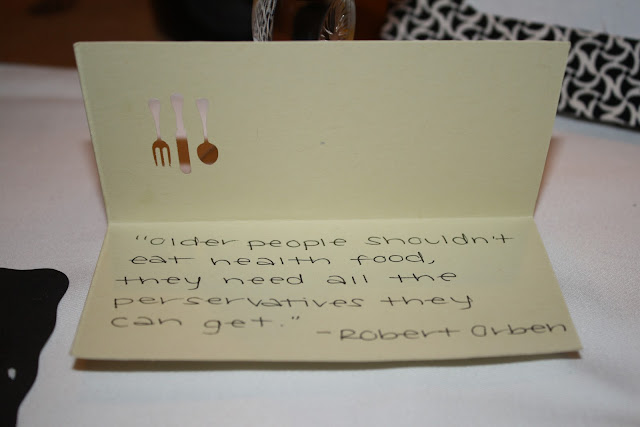 "Older people shouldn't
eat health food,
they need all the
perservatives they
can get."
-Robert Orben